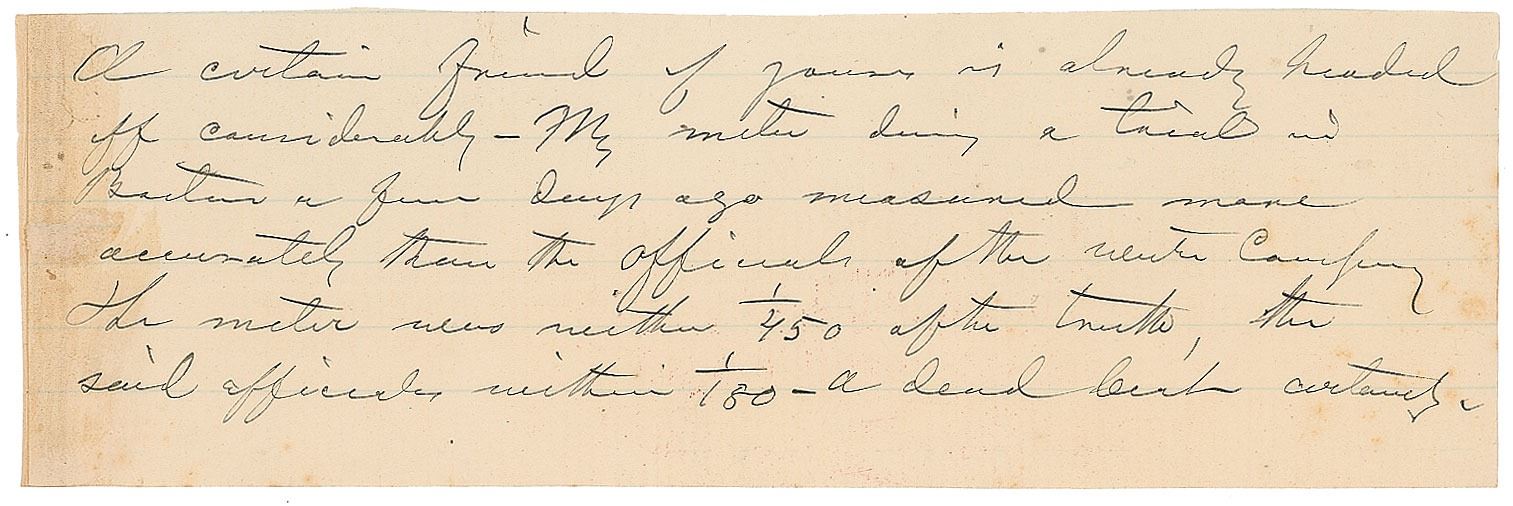 A certain friend of yours is already headed
off considerably – My meter during a trial in
Boston a few days ago measured more
accurately than the officials of the water Company
The meter was within 1/450 of the truth, the
said officials within 1/180 – A dead beat certainly.